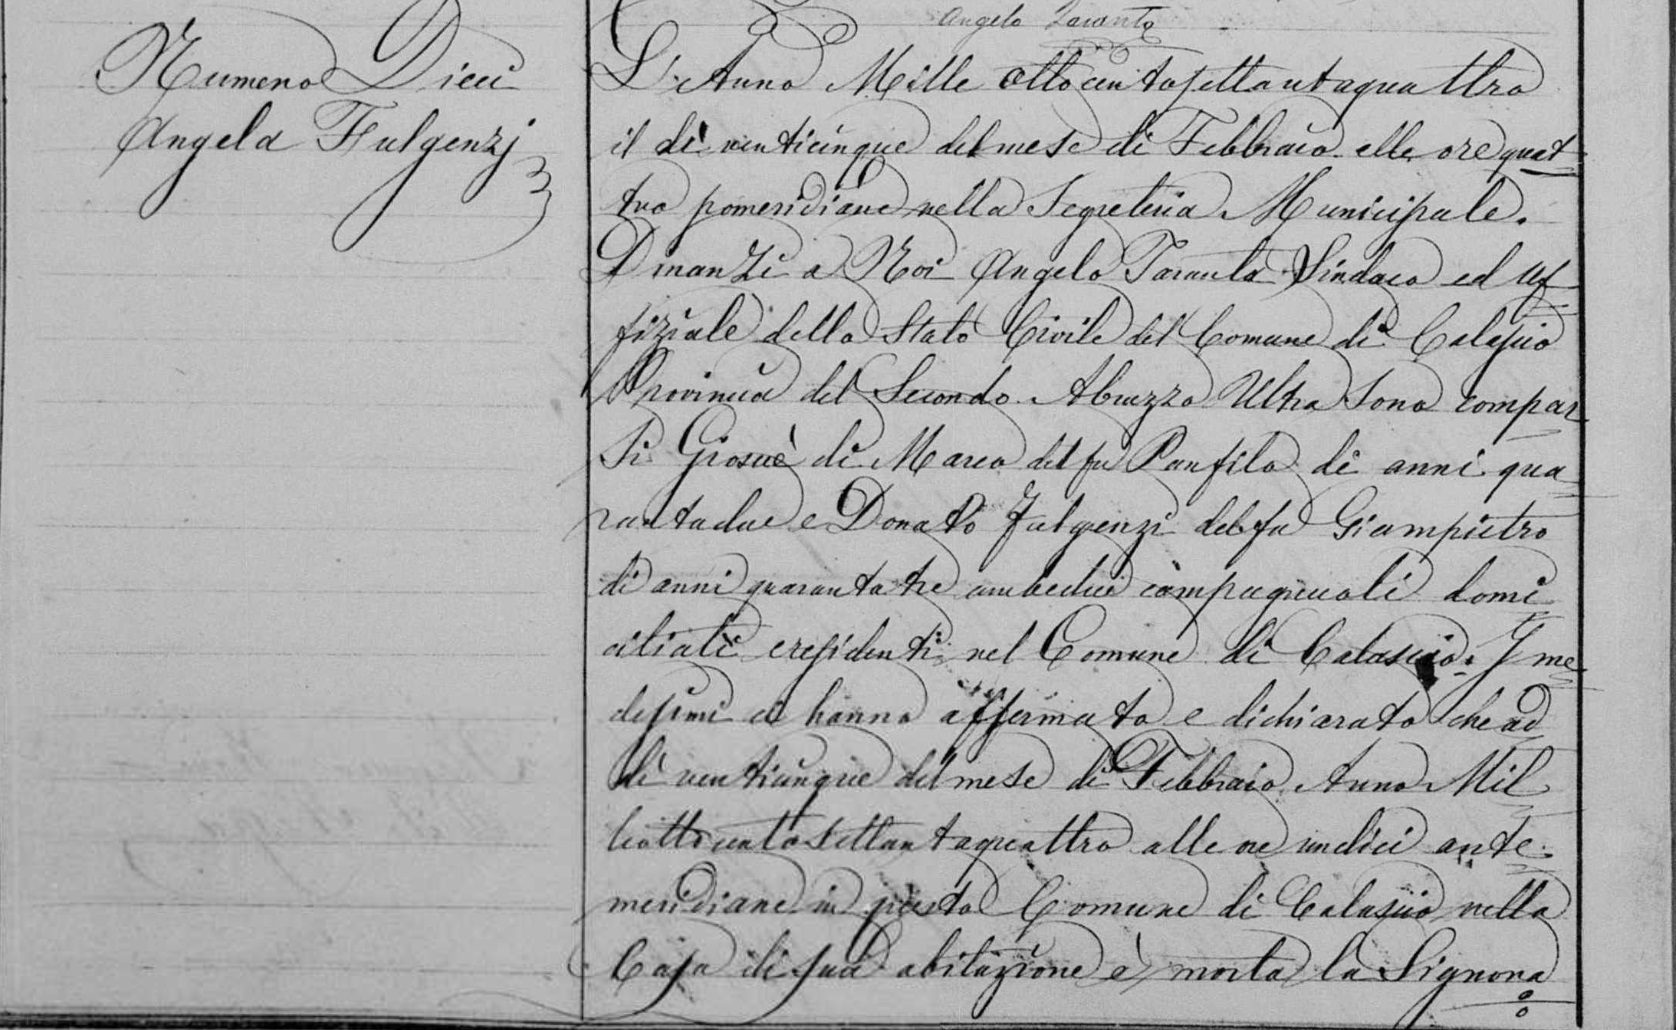 Angelo Taranta
Numero Dieci
Angela Fulgenzj
L'Anno Mille ottocentosettantaquattro
il dì venticinque del mese di Febbraio alle ore quat
tro pomeridiane nella Segreteria Municipale.
Dinanzi a Noi Angelo Taranta Sindaco ed Uf
fiziale dello Stato Civile del Comune di Calascio
Provincia del Secondo Abruzzo Ultra Sono compar
si Giosuè di Marco del fu Panfilo di anni qua
rantadue e Donato Fulgenzi del fu Giampietro
di anni quarantatre ambedue campagnuoli domi
ciliati e residenti nel Comune di Calascio. I me
desimi ci hanno affermato e dichiarato che ad
dì venticinque del mese di Febbraio Anno Mil
leottocentosettantaquattro alle ore undici ante
meridiane in questo Comune di Calascio nella
Casa di sua abitazione è morta la Signora